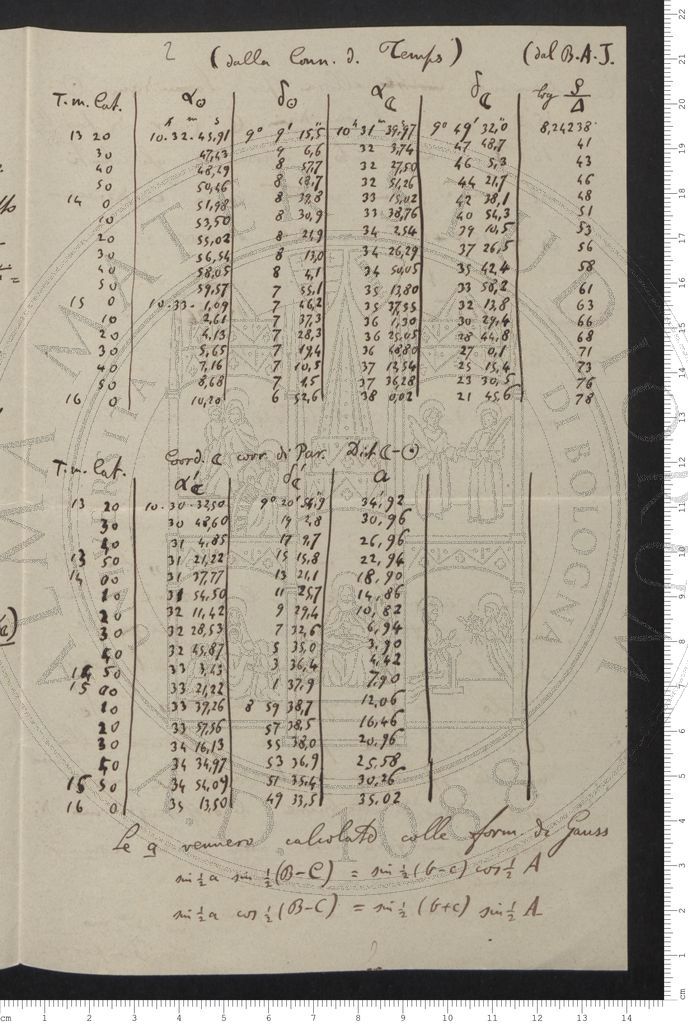 2 (dalla Conn. d. Temps) (dal B.A.J.
T.m. Cat. α☉ δ☉ α☾ δ☾ log ρ/Δ
h m s
13 20 10.32.45,91 9° 9' 15,5" 10h 31m 39,97s 9° 49' 32,"0 8,24238
30 47,43 9 6,6 32 3,74 47 48,7 41
40 48,29 8 57,7 32 27,50 46 5,3 43
50 50,46 8 48,7 32 51,26 44 21,7 46
14 0 51,98 8 39,8 33 15,02 42 38,1 48
10 53,50 8 30,9 33 38,76 40 54,3 51
20 55,02 8 21,9 34 2,54 39 10,5 53
30 56,54 8 13,0 34 26,29 37 26,5 56
40 58,05 8 4,1 34 50,05 35 42,4 58
50 59,57 7 55,1 35 13,80 33 58,2 61
15 0 10.33.1,09 7 46,2 35 37,55 32 13,8 63
10 2,61 7 37,3 36 1,30 30 29,4 66
20 4,13 7 28,3 36 25,05 28 44,8 68
30 5,65 7 19,4 36 48,80 27 0,1 71
40 7,16 7 10,5 37 12,54 25 15,4 73
50 8,68 7 1,5 37 36,28 23 30,5 76
16 0 10,20 6 52,6 38 0,02 21 45,6 78
Coord. ☾ corr. di Par. Dist. ☾-☉
T.m. Cat. α'☾ δ'☾ a
13 20 10.30.32,50 9° 20' 54,"9 34,92
30 30 48,60 19 2,8 30,96
40 31 4,85 17 9,7 26,96
13 50 31 21,22 15 15,8 22,94
14 00 31 37,77 13 21,1 18,90
10 31 54,50 11 25,7 14,86
20 32 11,42 9 29,4 10,82
30 32 28,53 7 32,6 6,94
40 32 45,87 5 35,0 3,90
14 50 33 3,43 3 36,4 4,42
15 00 33 21,22 1 37,9 7,90
10 33 39,26 8 59 38,7 12,06
20 33 57,56 57 38,5 16,46
30 34 16,13 55 38,0 20,96
40 34 34,97 53 36,9 25,58
15 50 34 54,09 51 35,4 30,26
16 0 35 13,50 49 33,5 35,02
Le a vennero calcolate colle form. di Gauss
sin ½a sin ½(B-C) = sin ½(b-c) cos ½ A
sin ½a cos ½(B-C) = sin ½(b+c) sin ½ A